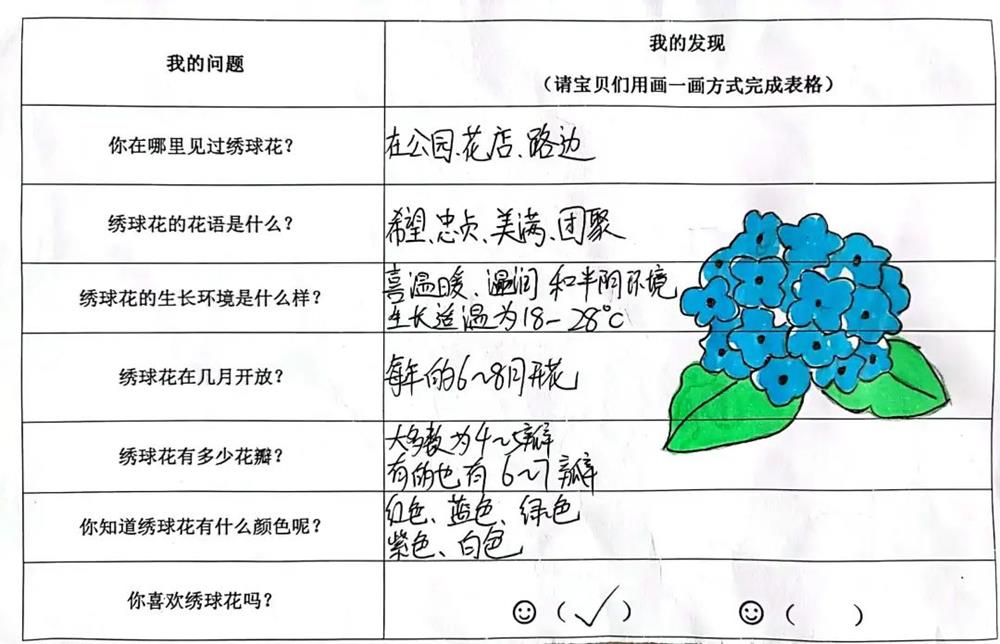 我的问题
我的发现
（请宝贝们用画一画方式完成表格）
你在哪里见过绣球花？
在公园、花店、路边
绣球花的花语是什么？
希望、忠贞、美满、团聚
绣球花的生长环境是什么样？
喜温暖、湿润和半阴环境
生长适温为18-28°C
绣球花在几月开放？
每年的6~8月开花
绣球花有多少花瓣？
大多数为4~5瓣
有的也有6~7瓣
你知道绣球花有什么颜色呢？
红色、蓝色、绿色
紫色、白色
你喜欢绣球花吗？
☺（✓） ☺（ ）